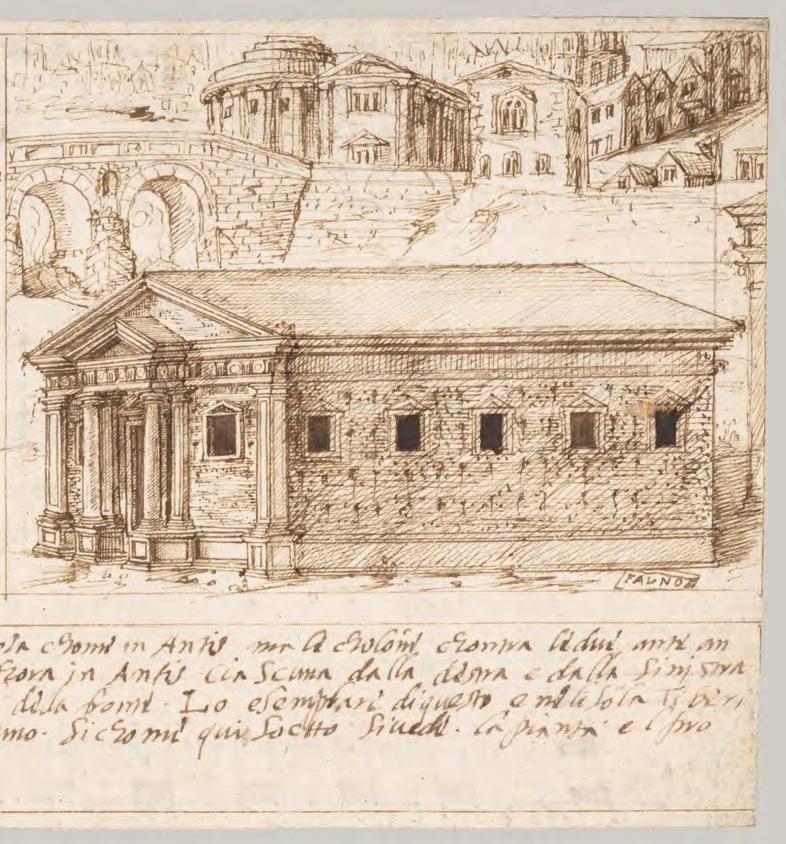 FAUNO
chome in Antis ma le cholone chontra le due ante an
in Antis Ciascuna dalla destra e dalla sinistra
dela fonte. Lo esemplare di questo e nelisola Tiberi
sichome qui socto sivede. la pianta e l pro